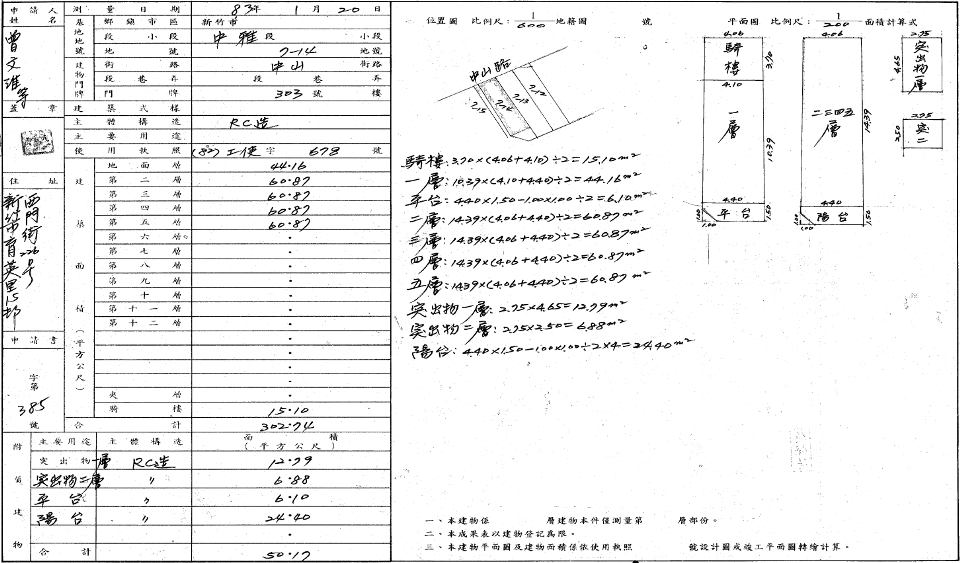 申請人姓名
曾文進等
蓋章
住址
新竹市育英里15鄰
西門街226号
申請書
字第
385
號
測量日期 83年 1月 20日
基地地號 鄉鎮市區 新竹市
段小段 中雅段 小段
地號 7-14 地號
建物門牌 街路 中山 街路
段巷弄 段 巷 弄
門牌 303 號 樓
建築式樣
主體構造 RC造
主要用途
使用執照 (82)工使字 678 號
建築面積(平方公尺)
地面層 44.16
第二層 60.87
第三層 60.87
第四層 60.87
第五層 60.87
第六層
第七層
第八層
第九層
第十層
第十一層
第十二層
夾層
騎樓 15.10
合計 302.74
附屬建物
主要用途 主體構造 面積(平方公尺)
突出物一層 RC造 12.79
突出物二層 〃 6.88
平台 〃 6.10
陽台 〃 24.40
合計 50.17
位置圖 比例尺:1/600 地籍圖 號
中山路
7-15
7-14
7-13
7-12
平面圖 比例尺:1/200 面積計算式
4.06
騎樓
3.70
4.10
一層
10.39
4.40
平台
1.50
1.00
1.00
4.06
二三四五層
14.39
4.40
陽台
1.50
1.00
1.00
2.75
突出物一層
4.65
2.75
突二
2.50
騎樓:3.70×(4.06+4.10)÷2=15.10m²
一層:10.39×(4.10+4.40)÷2=44.16m²
平台:4.40×1.50-1.00×1.00÷2=6.10m²
二層:14.39×(4.06+4.40)÷2=60.87m²
三層:14.39×(4.06+4.40)÷2=60.87m²
四層:14.39×(4.06+4.40)÷2=60.87m²
五層:14.39×(4.06+4.40)÷2=60.87m²
突出物一層:2.75×4.65=12.79m²
突出物二層:2.75×2.50=6.88m²
陽台:4.40×1.50-1.00×1.00÷2×4=24.40m²
一、本建物係 層建物本件僅測量第 層部份。
二、本成果表以建物登記為限。
三、本建物平面圖及建物面積係依使用執照 號設計圖或竣工平面圖轉繪計算。